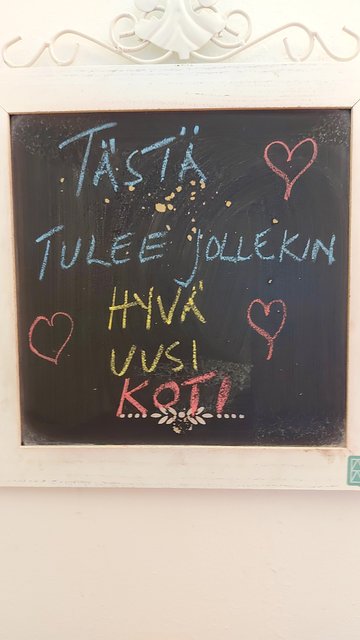 TÄSTÄ
TULEE JOLLEKIN
HYVÄ
UUSI
KOTI